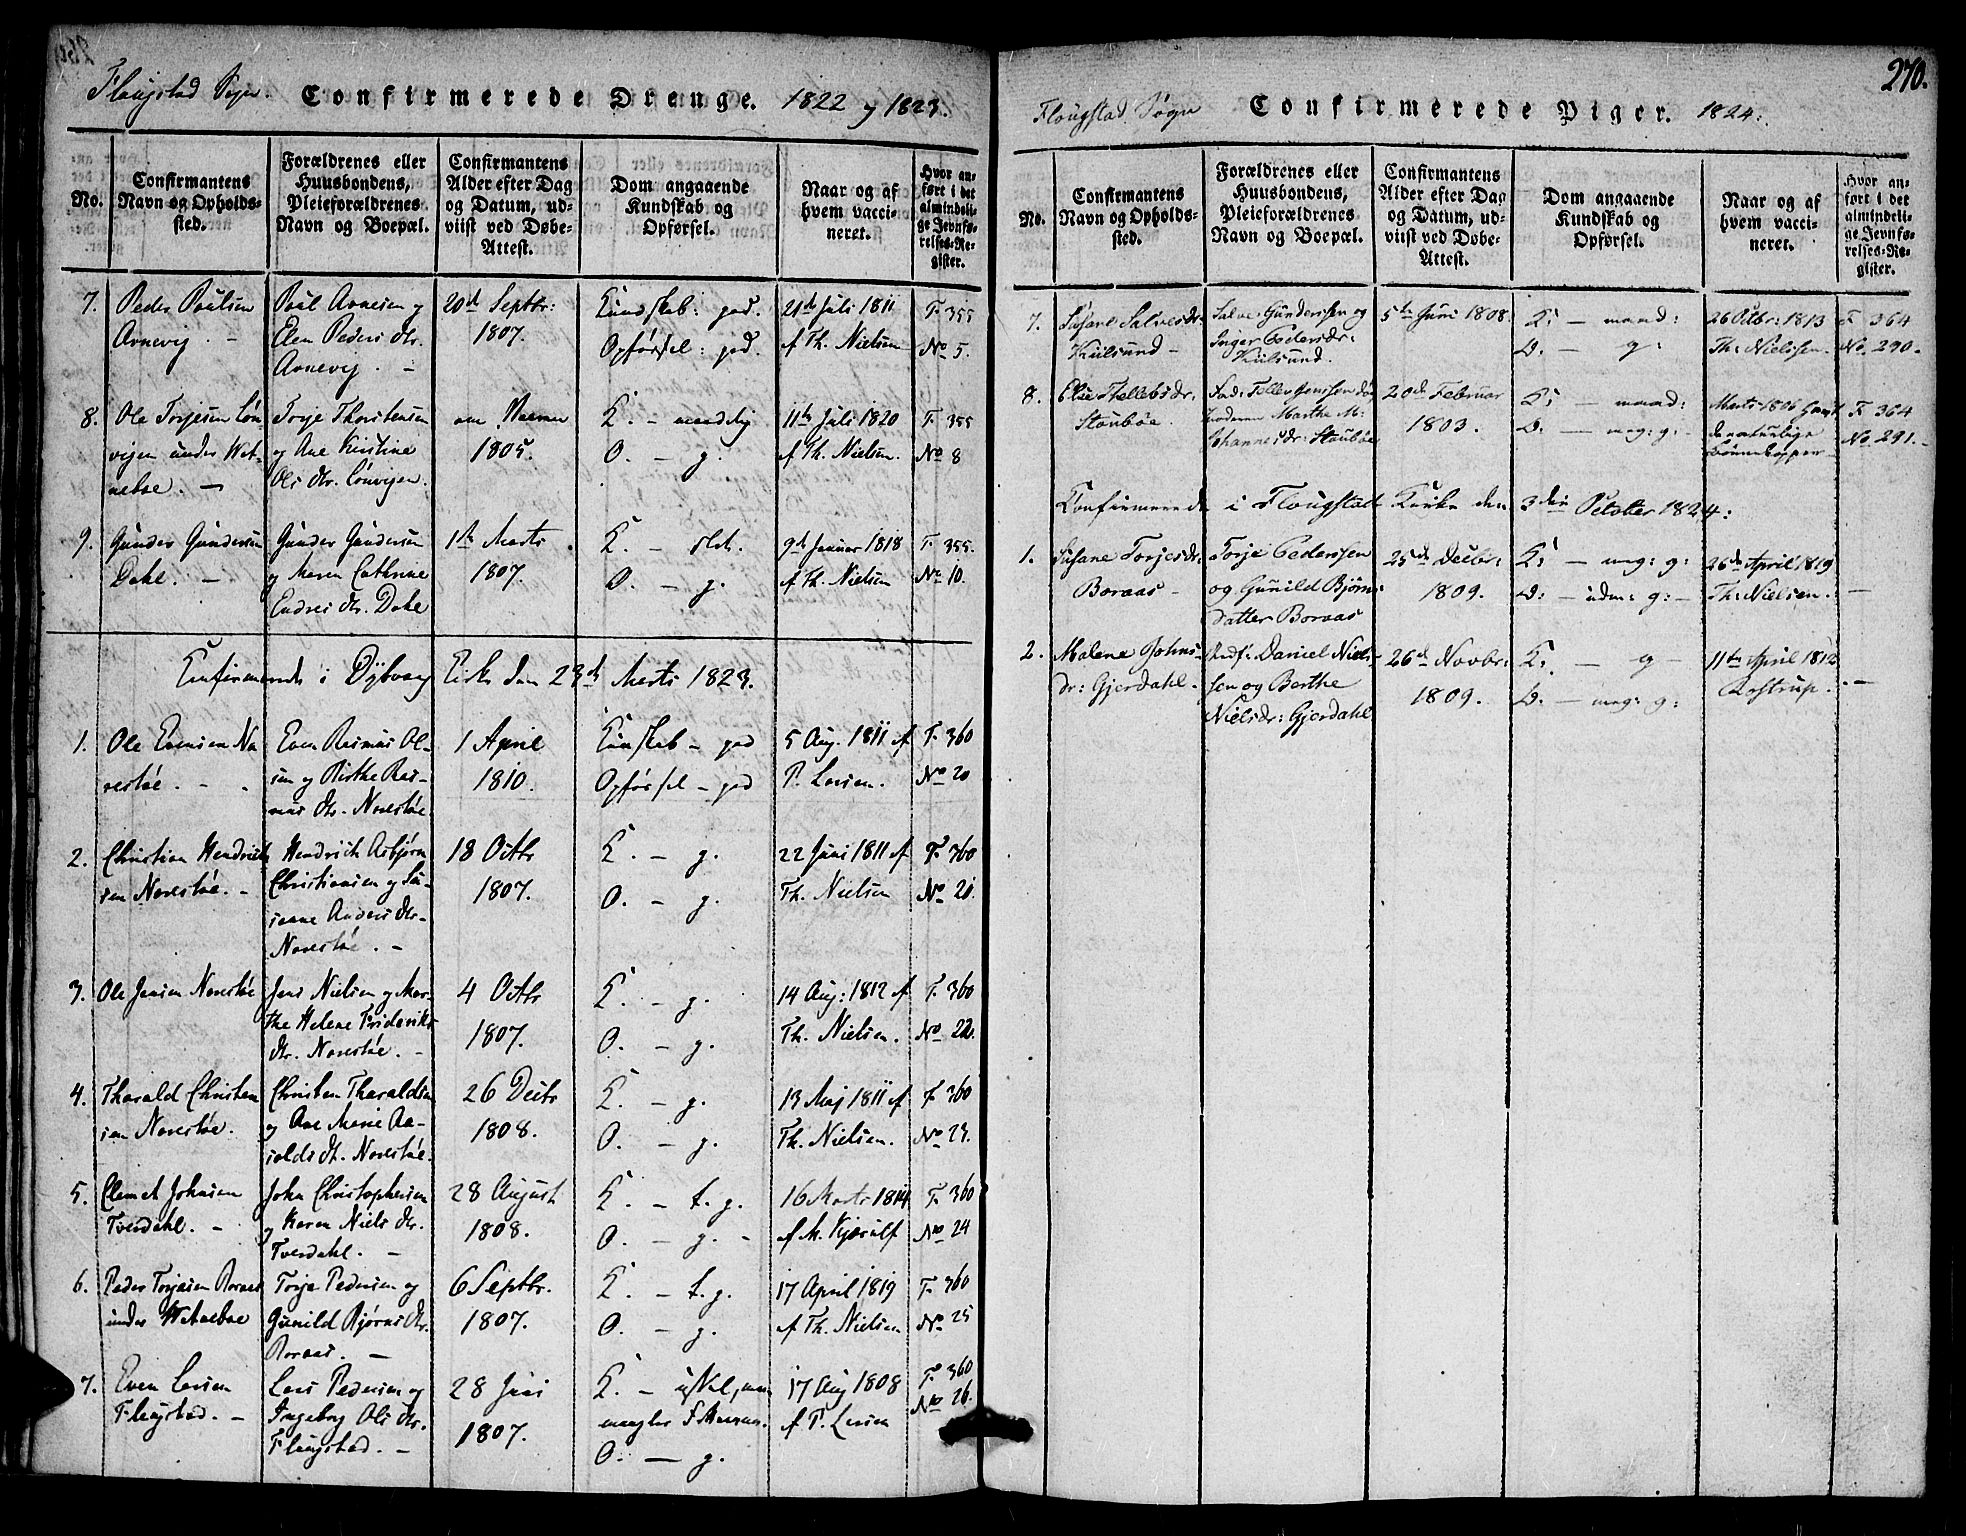 Flaugstad Sogn. Confirmerede Drenge. 1822 og 1823.
No.
Confirmantens
Navn og Opholds-
sted.
Forældrenes eller
Huusbondens,
Pleieforældrenes
Navn og Boepæl.
Confirmantens
Alder efter Dag
og Datum, ud-
viist ved Døbe-
Attest.
Dom angaaende
Kundskab og
Opførsel.
Naar og af
hvem vacci-
neret.
Hvor an-
ført i det
almindeli-
ge Jevnfø-
relses-Re-
gister.
7.
Peder Poulsen
Arnevig. -
Poul Arnesen og
Elen Peders Dtr.
Arnevig. -
20d Septbr:
1807.
Kundskab: god.
Opførsel: god.
21d Juli 1811
af Th. Nielsen
F. 355
No 5.
8.
Ole Torjesen Løn
vigen under Wet-
neboe. -
Torje Thorstensen
og Ane Kirstine
Ols Dtr. Lønvigen.
om
1805.
K. - maadelig
O. - g.
11th Juli 1820
af Th. Nielsen.
F. 355
No 8
9.
Gunder Gundersen
Dahl. -
Gunder Gundersen
og Maren Cathrine
Endres Dtr. Dahl
1th Marts
1807.
K. - slet.
O. - g.
9d Januar 1818
af Th. Nielsen
F. 355.
No 10.
Confirmerede i Dybvaag Kirke den 23d Marts 1823.
1.
Ole Evensen Na
restøe. -
Even Rasmus Ol-
sen og Birthe Ras-
mus Dtr. Narestøe.
1 April
1810.
Kundskab - god
Opførsel - god
5 Aug. 1811 af
P. Larsen.
F. 360
No 20
2.
Christian Hendrich
sen Narestøe. -
Hendrich Asbjørn
Christiansen og Su-
sanne Anders Dtr.
Narestøe. -
18 Octbr
1807.
K. - g.
O. - g.
22 Juni 1811 af
Th. Nielsen
F. 360
No 21.
3.
Ole Jensen Narestøe
Jens Nielsen og Mar-
the Helene Frideriks
Dtr. Narestøe. -
4 Octbr
1807.
K. - g.
O. - g.
14 Aug: 1812 af
Th. Nielsen.
F. 360
No 22.
4.
Tharald Christen
sen Narestøe.
Christen Tharaldsen
og Ane Marie Aa-
solds Dt. Narestøe.
26 Decbr
1808.
K. - g.
O. - g.
13 Maj 1811 af
Th. Nielsen.
F. 360
No 23.
5.
Clemet Johnsen
Tverdahl. -
John Christophersen
og Karen Niels Dtr.
Tverdahl. -
28 August
1808.
K. - t. g.
O. - g. -
16 Marts 1814
af M. Kjærulf
F. 360
No 24
6.
Peder Torjesen Boraas
under Wetneboe
Torje Pedersen og
Gunild Bjørns Dtr.
Boraas. -
6 Septbr.
1807.
K. - t. g.
O. - g.
17 April 1819
af Th. Nielsen
F. 360
No 25
7.
Even Larsen
Flaugstad. -
Lars Pedersen og
Ingeborg Ols Dtr.
Flaugstad. -
28 Juni
1807.
K. -
mangler
O: - g.
17 Aug 1808
af P. Larsen
F. 360
No 26.
270.
Flougstad Sogn Confirmerede Piger. 1824.
No.
Confirmantens
Navn og Opholds-
sted.
Forældrenes eller
Huusbondens,
Pleieforældrenes
Navn og Boepæl.
Confirmantens
Alder efter Dag
og Datum, ud-
viist ved Døbe-
Attest.
Dom angaaende
Kundskab og
Opførsel.
Naar og af
hvem vacci-
neret.
Hvor an-
ført i det
almindeli-
ge Jevnfø-
relses-Re-
gister.
7.
Susane Salvesdr:
Kiilsund -
Salve Gundersen og
Inger Pedersdr:
Kiilsund.
5te Juni 1808.
K: - maad:
O. - g:
26 Octbr: 1813
Th: Nielsen.
F 364
No. 290.
8.
Else Tellefsdr:
Stoubøe.
Tellef Jensen
Marthe M:
Johannesdr: Stoubøe
20de Februar
1803.
K: - maad:
O. - meg: g: -
Marts 1806
de naturlige
Børnekopper -
F. 364
No. 291. -
Confirmerede i Flougstad Kirke den 3die October 1824:
1.
Susane Torjesdr:
Boraas -
Torje Pedersen
og Gunild Bjørns
datter Boraas
25de Decbr:
1809.
K: - meg: g:
O: - udm: g: -
26de April 1819
Th: Nielsen. -
2.
Malene Johns-
dr: Gjerdahl -
Daniel Niels-
sen og Berthe
Nielsdr: Gjerdahl
26de Novbr:
1809.
K: - g -
O. - meg: g:
11te April 1812
Rostrup. -